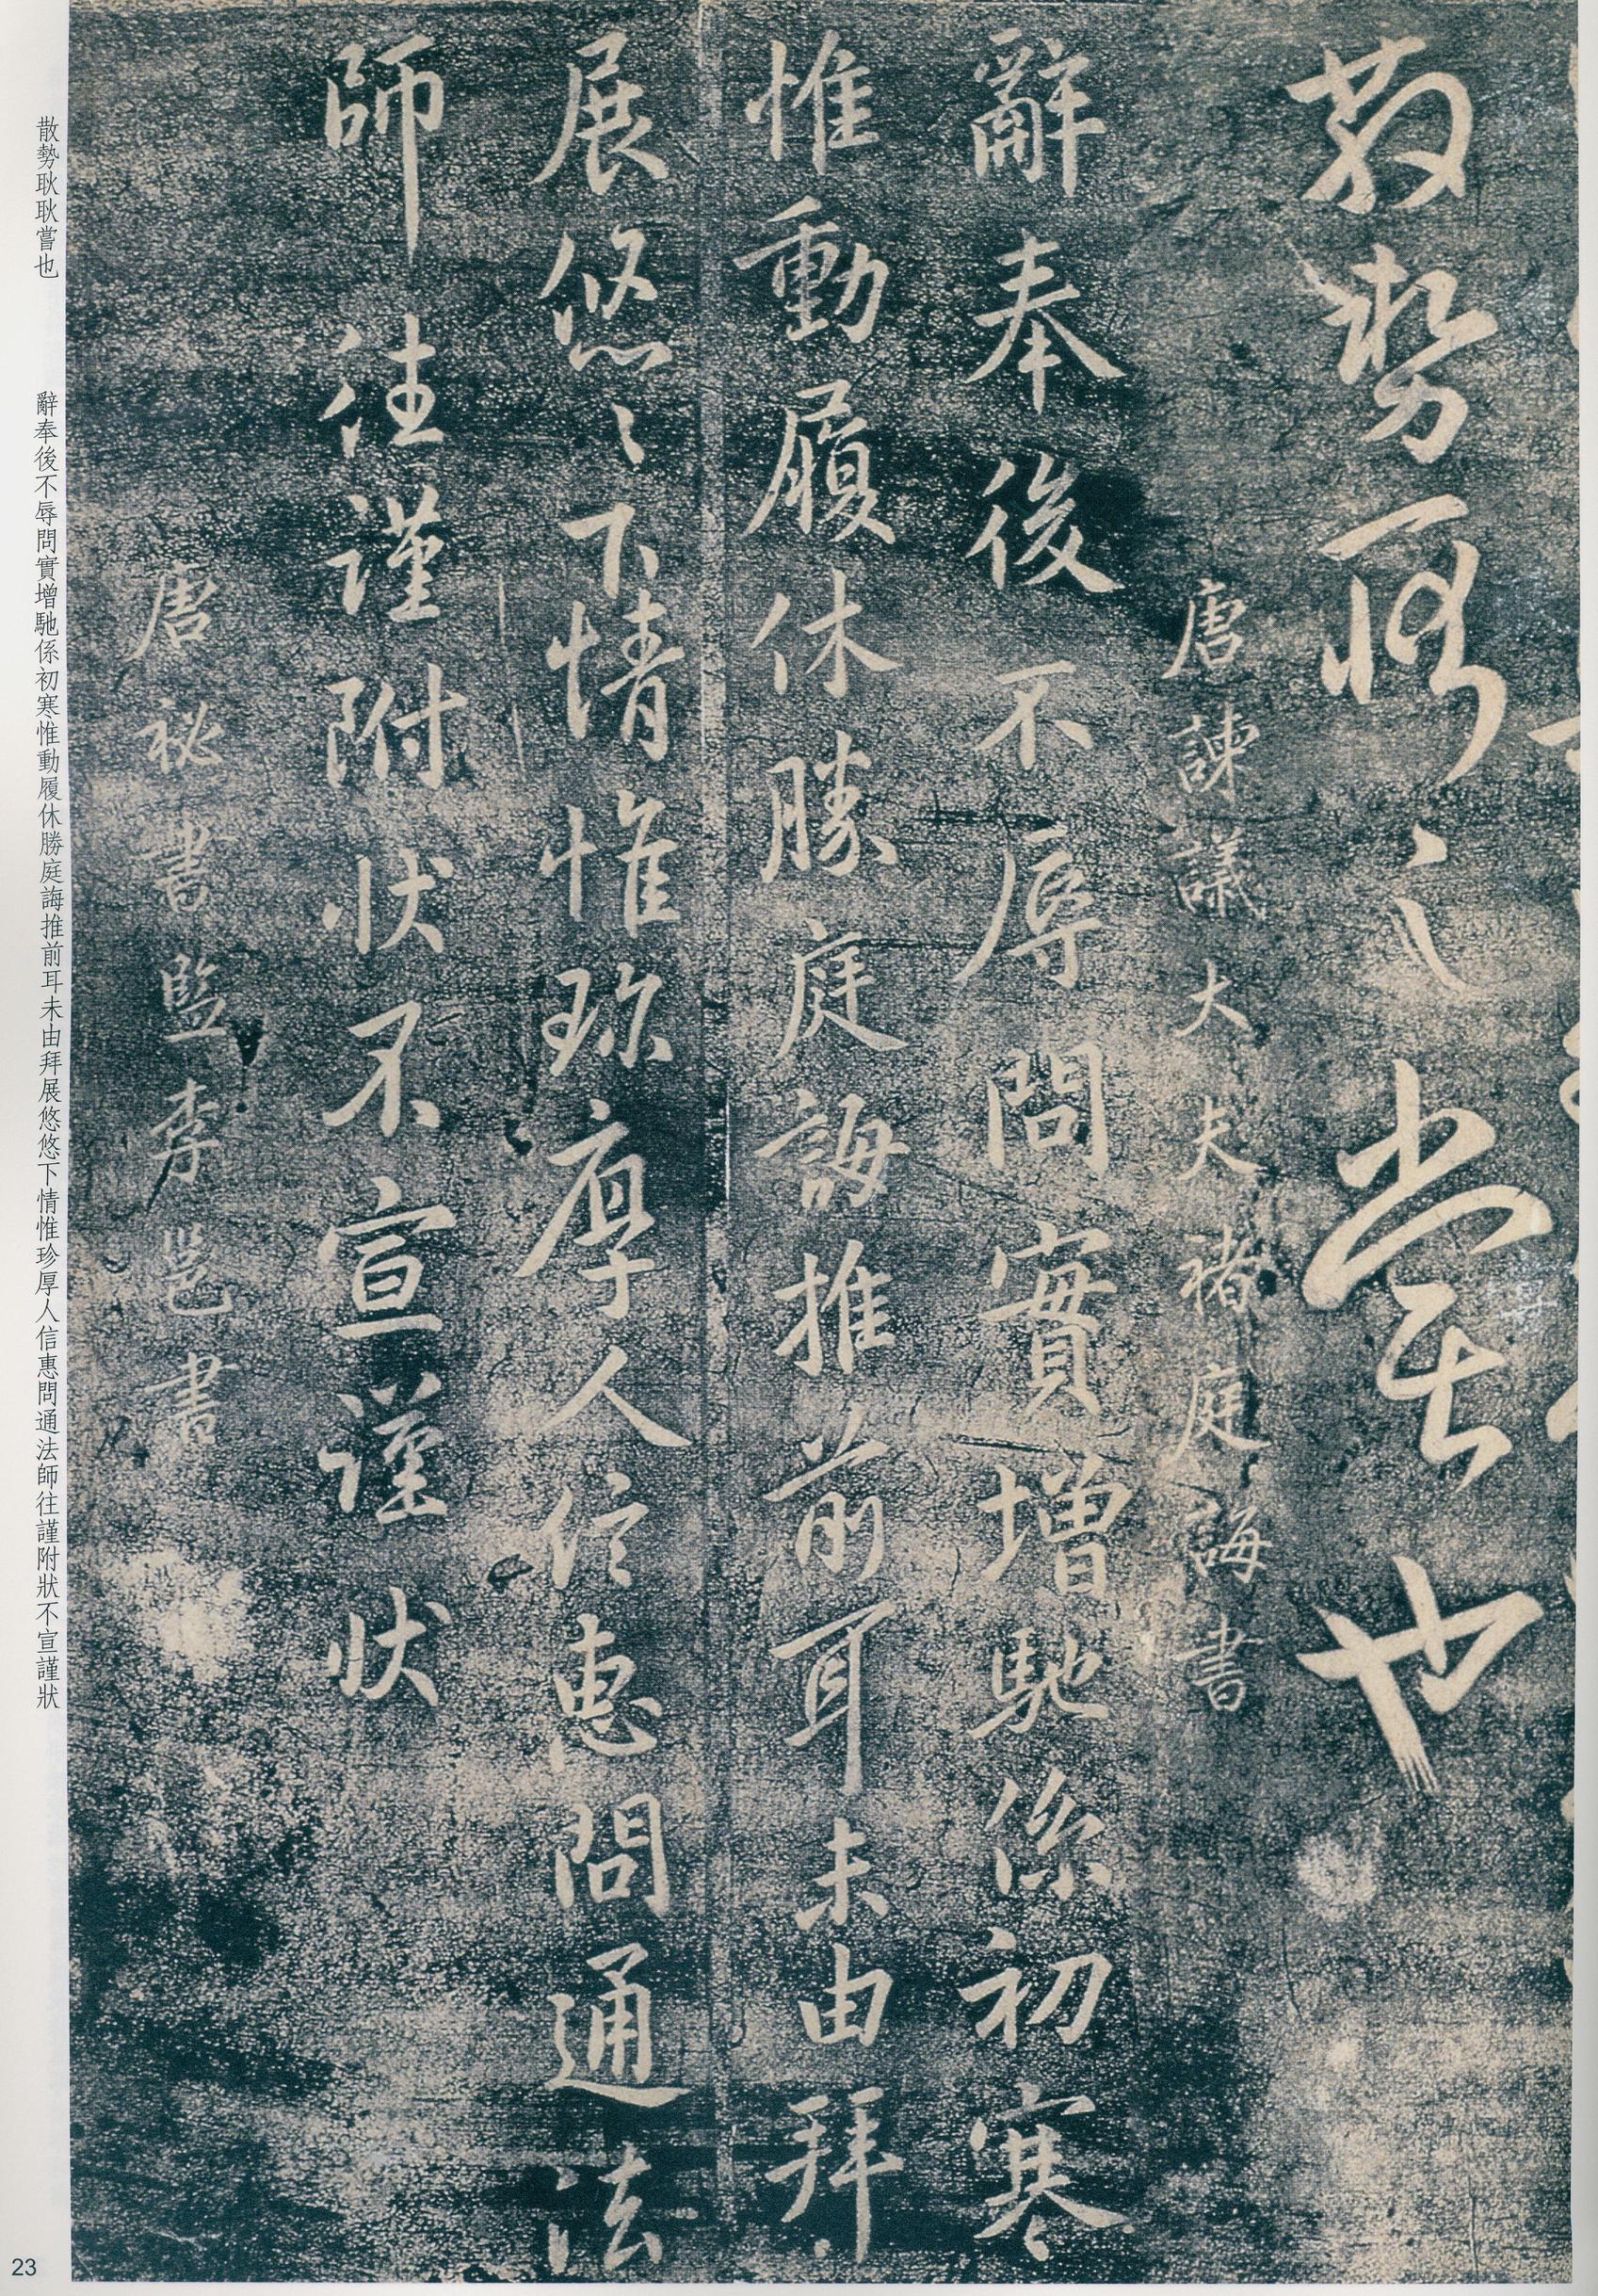 散勢耿〻嘗也
唐諫議大夫褚庭誨書
辭奉後不辱問實增馳係初寒
惟動履休勝庭誨推前耳未由拜
展悠〻下情惟珍厚人信惠問通法
師往謹附狀不宣謹狀
唐祕書監李邕書
散勢耿耿嘗也
辭奉後不辱問實增馳係初寒惟動履休勝庭誨推前耳未由拜展悠悠下情惟珍厚人信惠問通法師往謹附狀不宣謹狀
23